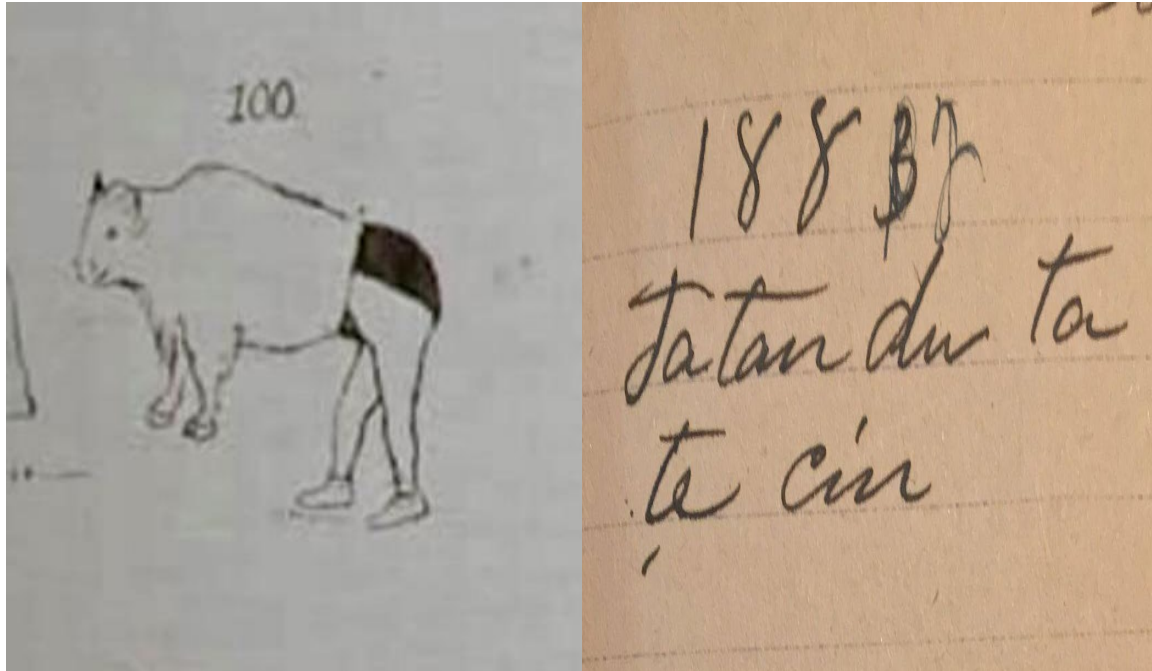 100
1887
Tatan du ta
te cin